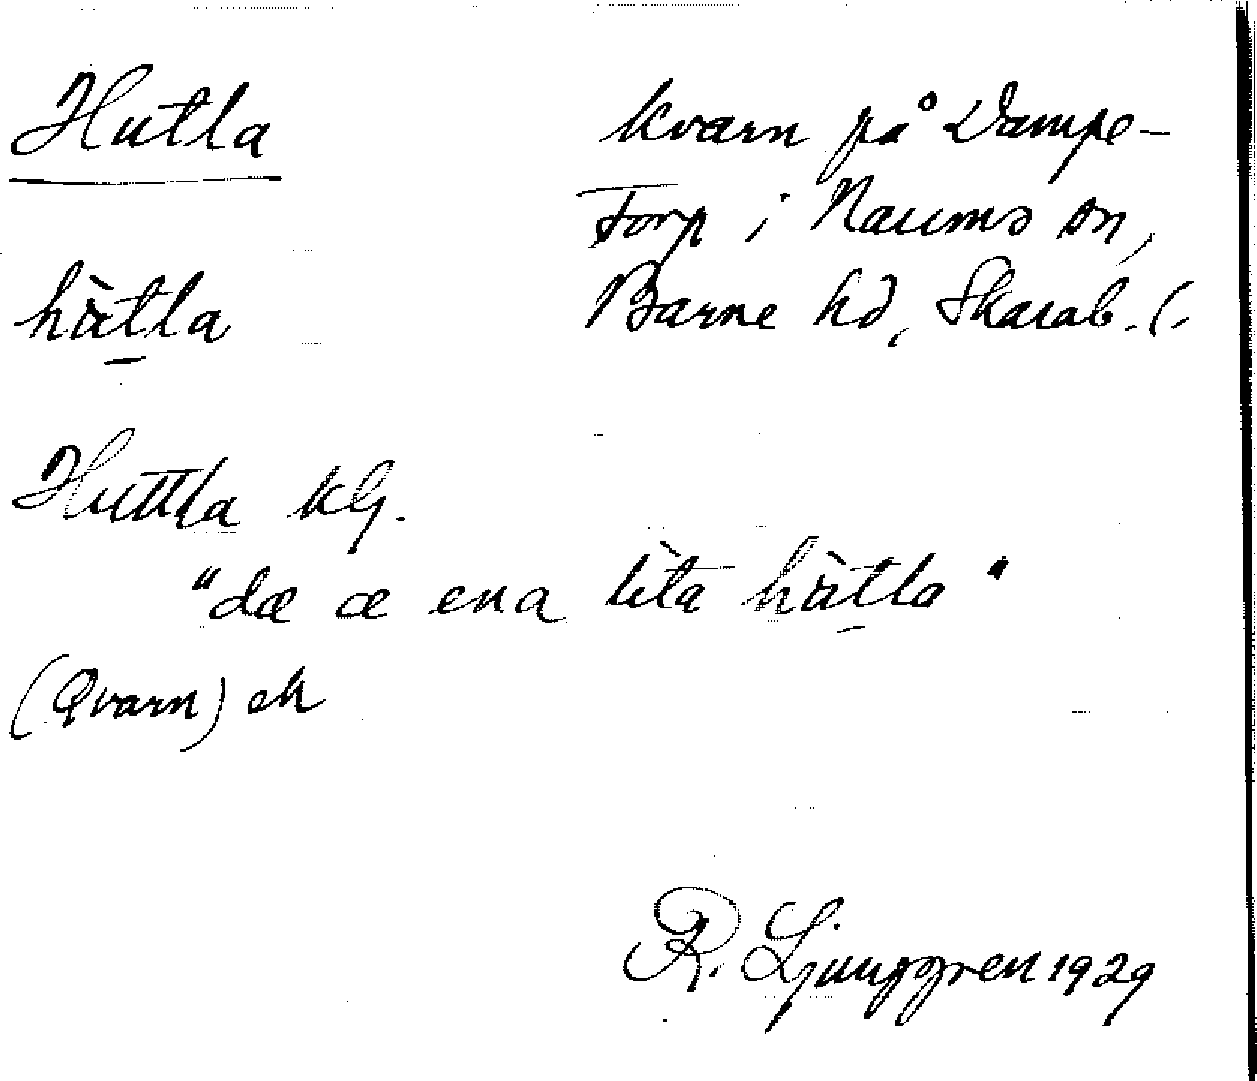 Hutla
kvarn på Vampe-
torp i Naums sn,
Barne hd, Skarab. l.
hàtla
Huttla kG.
"dæ æ ena lìta hàtla"
(Qvarn) ek
R. Ljunggren 1929